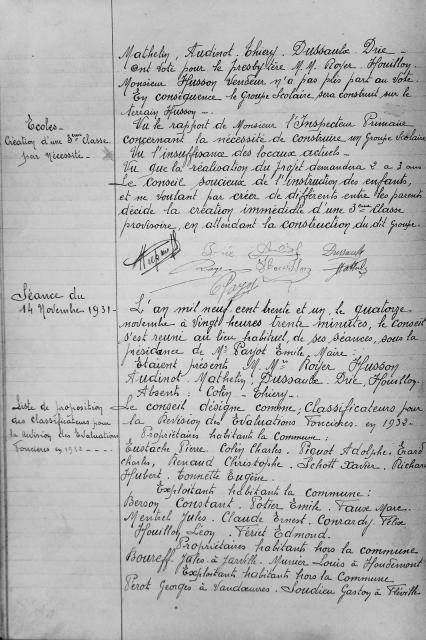 Mathelin, Audinot. Thiery. Dussaulx. Drie –
Ont voté pour le presbytère M.M. Royer. Houillon.
Monsieur Husson Vendeur n'a pas pris part au vote.
En conséquence le Groupe Scolaire sera construit sur le
terrain Husson –
Ecoles –
Création d'une 3eme Classe
par nécessité –
Vu le rapport de Monsieur l'Inspecteur Primaire
concernant la nécessité de construire un Groupe Scolaire
Vu l'insuffisance des locaux actuels –
Vu que la réalisation du projet demandera 2 a 3 ans
Le Conseil soucieux de l'instruction des enfants,
et ne voulant pas créer de différents entre les parents
décide la création immédiate d'une 3eme Classe
provisoire, en attendant la construction du dit Groupe.
Drie
Dussaulx
Royer
Mathelin
Séance du
14 Novembre 1931 –
L'an mil neuf cent trente et un, le quatorze
novembre à vingt heures trente minutes, le Conseil
s'est réuni au lieu habituel, de ses séances, sous la
présidence de Mr Parjot Emile, Maire.
Etaient présents M. Mrs Royer Husson
Audinot. Mathelin, Dussaulx. Drie, Houillon.
Absents : Colin – Thiery –
Liste de proposition
des Classificateurs pour
la Revision des Evaluations
Foncières en 1932 – – –
Le conseil désigne comme, Classificateurs pour
la Revision des Evaluations Foncières en 1932 –
Propriétaires habitants la Commune :
Eustache Pierre. Colin Charles. Piquot Adolphe. Erard
Charles, Renaud Christophe. Schott Xavier. Richard
Hubert. Tonnette Eugène.
Exploitants habitants la commune :
Bersoy Constant. Potier Emile. Faux Marc.
Menbel Jules. Claude Ernest. Conrardy Félix
Houillon Léon. Feriet Edmond.
Propriétaires habitants hors la commune
Boureff Jules à Jarville. Munier Louis à Houdemont
Exploitants habitants hors la Commune
Perot Georges à Vandoeuvres. Soudieu Gaston à Fléville